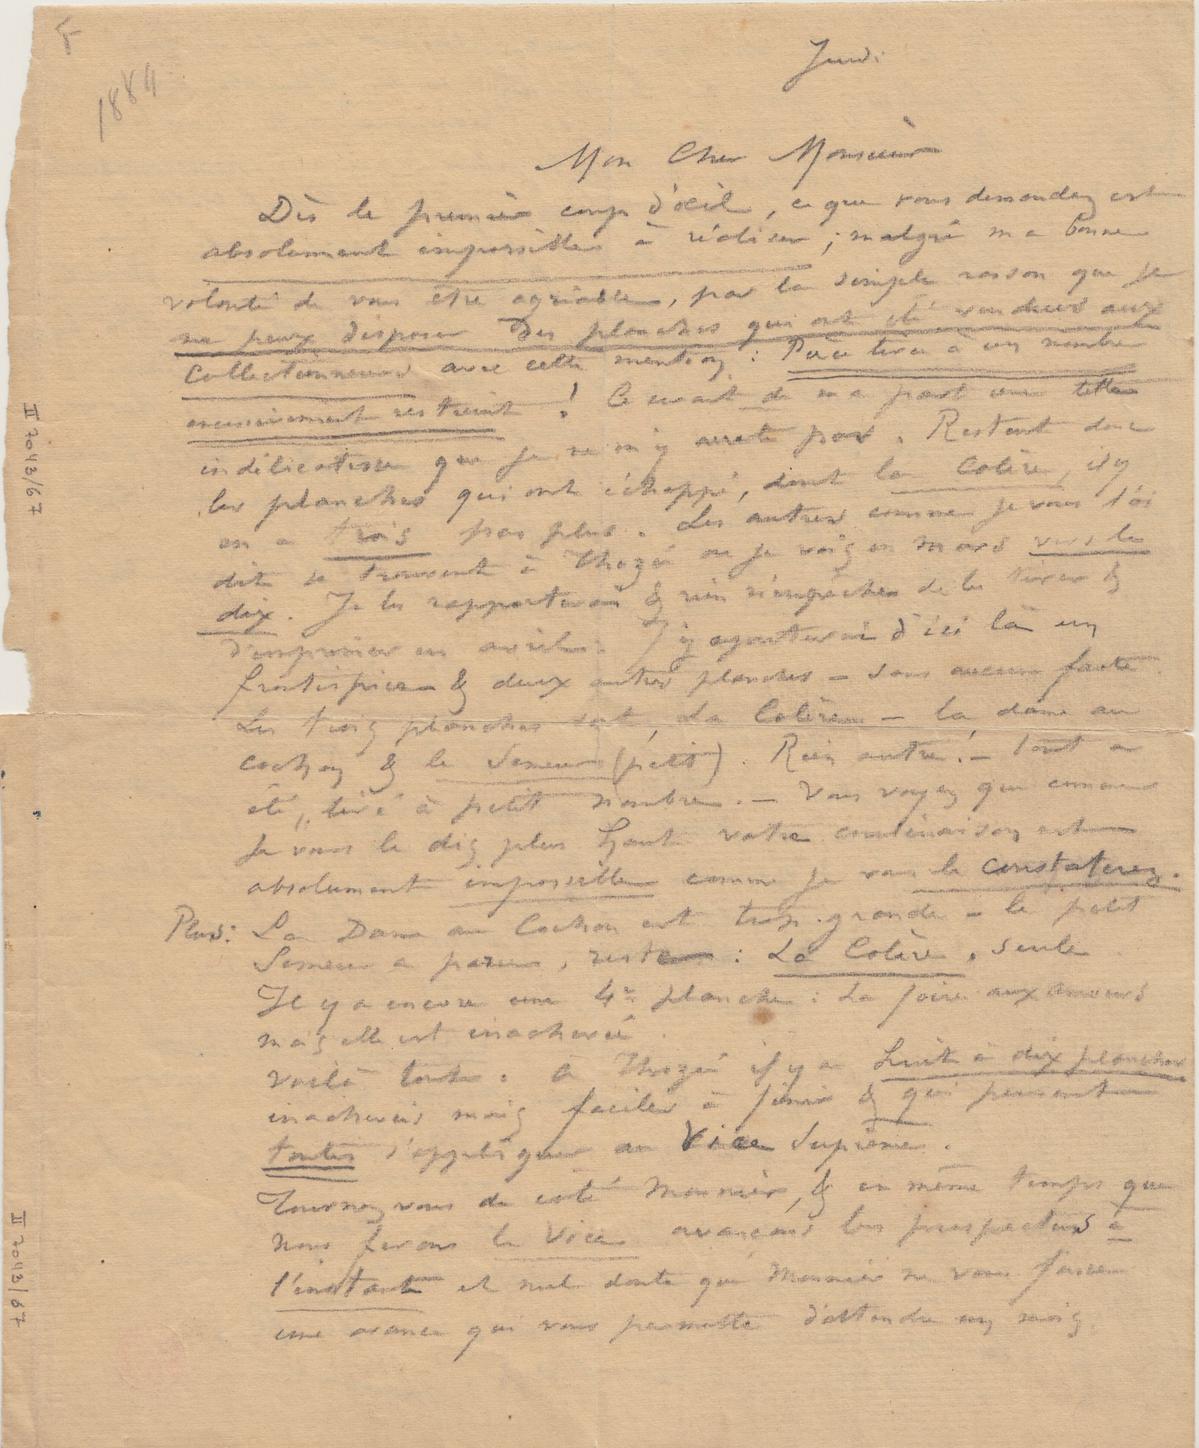 1884
Jeudi
Mon Cher Monsieur
Dès le premier coup d'œil, ce que vous demandez est
absolument impossible à réaliser ; malgré ma bonne
volonté de vous être agréable, par la simple raison que je
ne peux disposer des planches qui ont été vendues aux
Collectionneurs avec cette mention : Pièce tirée à un nombre
excessivement restreint ! Ce serait de ma part une telle
indélicatesse que je ne m'y arrête pas. Restent donc
les planches qui ont échappé, dont la Colère, il y
en a trois pas plus. Les autres comme je vous l'ai
dit se trouvent à Thozée où je vais en mars vers le
dix. Je les rapporterai & rien n'empêchera de les tirer &
d'imprimer en avril. J'y ajouterai d'ici là un
frontispice & deux autres planches – sans aucune faute
Les trois planches sont, La Colère – la dame au
cochon & le Semeur (petit). Rien autre. – Tout a
été, tiré à petit nombre. – Vous voyez que comme
Je vous le dis plus haut votre combinaison est
absolument impossible comme je vous le constaterez.
Plus: La Dame au Cochon est trop grande – le petit
Semeur a paru, reste : La Colère, seule
Il y a encore une 4e planche : La foire aux amours
mais elle est inachevée.
Voilà tout. A Thozée il y a huit à dix planches
inachevées mais faciles à finir & qui peuvent
toutes s'appliquer au Vice Suprême.
Tournez vous du coté Monnier, & en même temps que
nous ferons le Vice avançons les prospectus à
l'instant et nul doute que Monnier ne vous fasse
une avance qui vous permette d'attendre un mois.
II 7043/67
II 7043/67